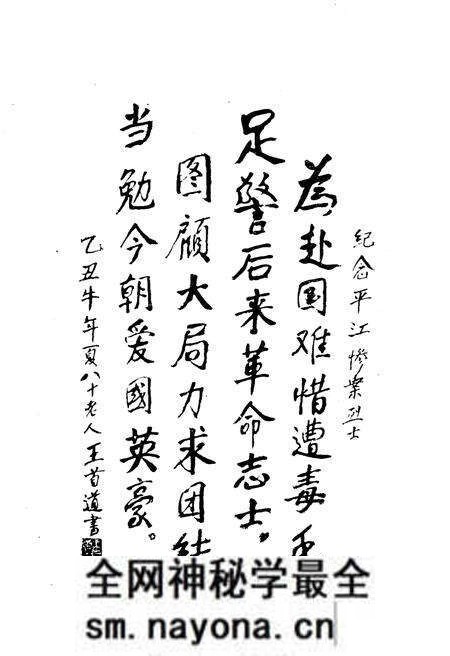 紀念平江惨案烈士
為赴国难惜遭毒手
足警后来革命志士。
图顾大局力求团结
当勉今朝爱國英豪。
乙丑牛年夏八十老人王首道書
全网神秘学最全
sm.nayona.cn